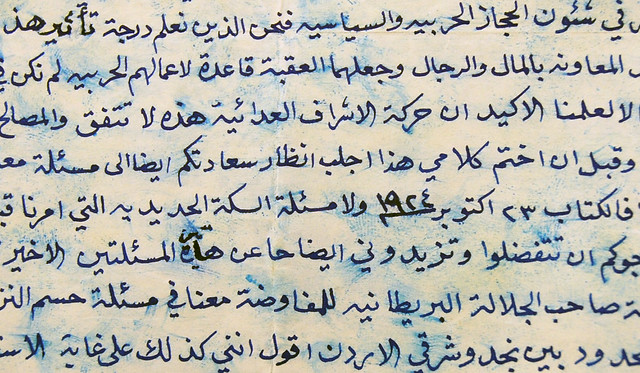 في شئون الحجاز الحربيه والسياسيه فنحن الذين نعلم درجة تأثير هذ
المعاونه بالمال والرجال وجعلهما العقبة قاعدة لاعمالهم الحربيه لم تكن
الا لعلمنا الاكيد ان حركة الاشراف العدائية هذه لا تتفق والمصالح
وقبل ان اختم كلامي هذا اجلب انظار سعادتكم ايضا الى مسئلة
الكتاب ٢٣ اكتوبر ١٩٢٤ ولا مسئلة السكة الحديديه التي امرنا
ان تتفضلوا وتزيدوني ايضاحا عن هاته المسئلتين الاخير
صاحب الجلالة البريطانيه للمفاوضة معنا في مسئلة حسم
بين نجد وشرقي الاردن اقول انني كذلك على غاية